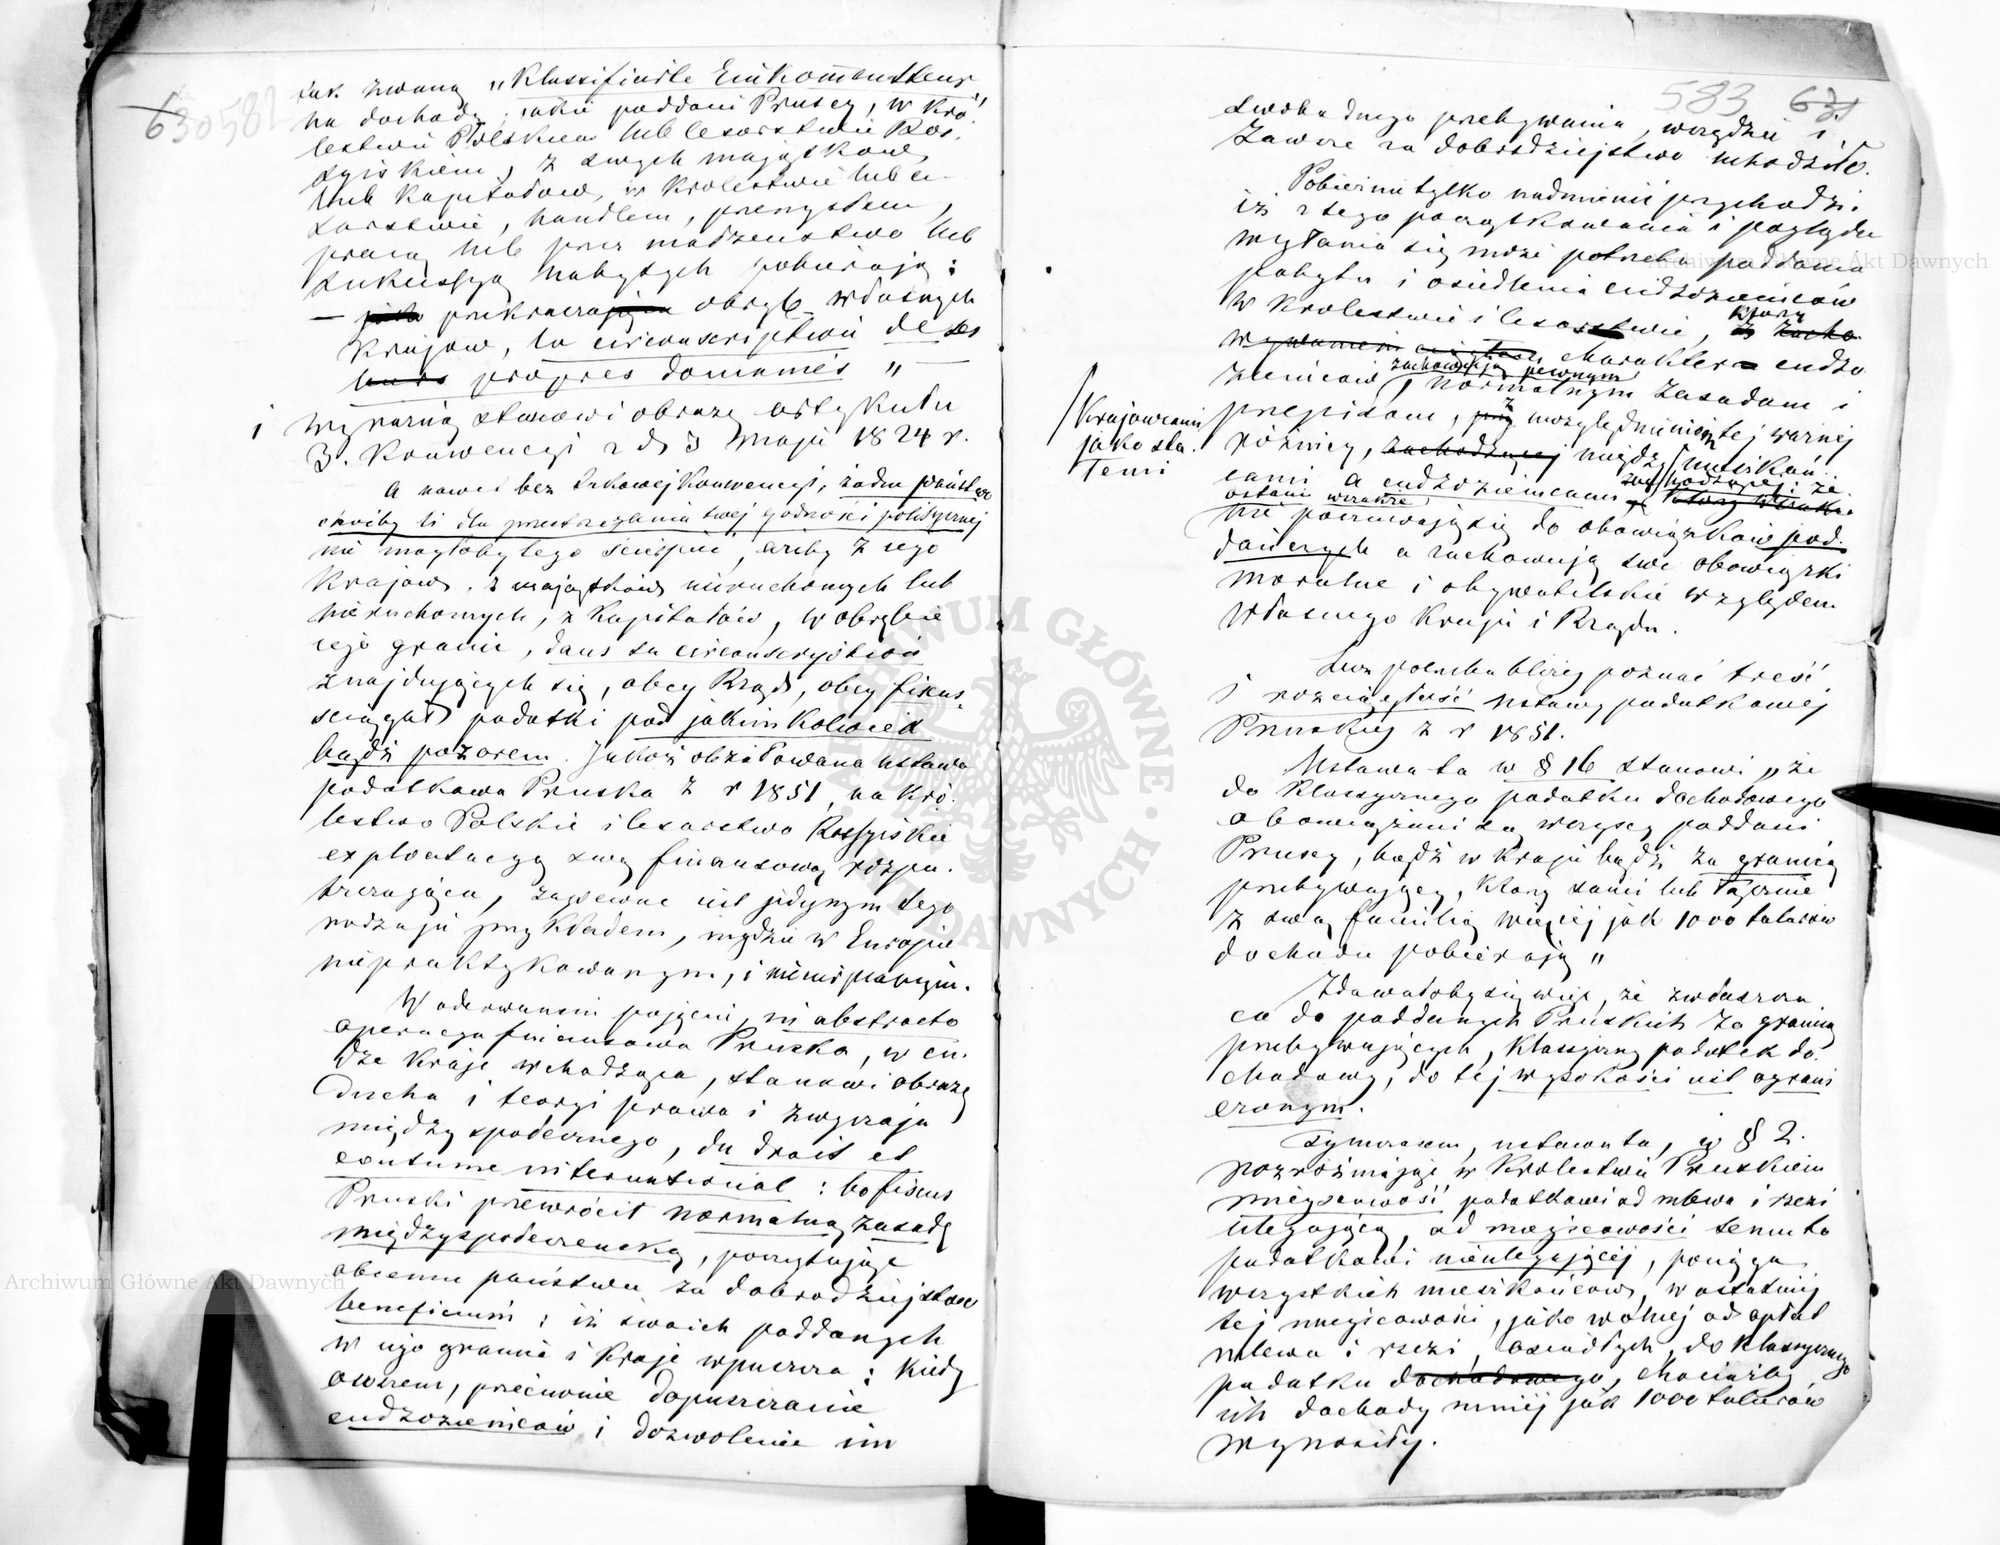 630 582
tak zwaną „Klassificirte Einkommensteuer"
na dochody, jakie poddani Pruscy, w Kró-
lestwie Polskiem lub Cesarstwie Ros-
syiskiem, z swych majątków
lub kapitałów, w Królestwie lub Ce-
sarstwie, handlem, przemysłem,
pracą lub przez małżeństwo lub
sukcessyą nabytych pobierają:
— przekracza obręb własnych
Krajów, la circonscription de ses
propres domaines " —
i wyraźną stanowi obrazę artykułu
3. Konwencyi z d. 3 Maja 1824 r.
A nawet bez takowej Konwencyi, żadne państwo
choćby li dla przestrzegania swej godności politycznej
nie mogłoby tego ścierpieć, ażeby z jego
Krajów, z majątków nieruchomych lub
nieruchomych, z Kapitałów, w obrębie
jego granic, dans sa circonscription
znajdujących się, obcy Rząd, obcy fiscus
ściągał podatki pod jakimkolwiek
bądź pozorem. Jakoż obżałowana ustawa
podatkowa Pruska z r 1851, na Kró-
lestwo Polskie i Cesarstwo Rossyiskie
exploatacyą swą finansową rozpo-
strzeniająca, zapewne jest jedynym tego
rodzaju przykładem, nigdzie w Europie
niepraktykowanym, i
W oderwanem pojęciu, in abstracto
operacya finansowa Pruska, w cu-
dze kraje wchodząca, stanowi obrazę
Ducha i teoryi prawa i zwyczaju
międzyspołecznego, du droit et
coutume international: bo fiscus
Pruski przewrócił normalną zasadę
międzyspołeczeńską, poczytując
obcemu państwu za dobrodziejstwo
beneficium; iż swoich poddanych
w jego granice i Kraje wpuszcza: kiedy
owszem, przeciwnie dopuszczanie
cudzoziemców i dozwolenie im
583 631
swobodnego przebywania, wszędzie i
zawsze za dobrodziejstwo uchodziło.
Pobieżnie tylko nadmienić przychodzi
iż z tego początkowania i poglądu
wyłania się może potrzeba poddania
pobytu i osiedlenia cudzoziemców
w Królestwie i Cesarstwie, którzy
charakter cudzo
ziemców zachowują pewnym normalnym zasadom i
przepisom, z względnieniem tej ważnej
Krajowcami
jako sta-
łemi
różnicy, między mieszkań-
cami a cudzoziemcami zachodzącej: że
ostatni wszakże
nie poczuwają się do obowiązków pod-
dańczych a zachowują swe obowiązki
moralne i obywatelskie względem
Własnego Kraju i Rządu.
Lecz potrzeba bliżej poznać treść
i rozciągłość ustawy podatkowej
Pruskiej z r 1851.
Ustawa ta w § 16 stanowi „że
do Klassycznego podatku dochodowego
obowiązani są wszyscy poddani
Pruscy, bądź w kraju bądź za granicą
przebywający, którzy sami lub łącznie
z swą familią więcej jak 1000 talarów
dochodu pobierają"
Zdawałoby się więc, że zwłaszcza
co do poddanych Pruskich za granicą
przebywających, Klassyczny podatek do-
chodowy, do tej wysokości jest ograni
czonym.
Tymczasem, ustawa ta, w § 2.
rozróżniając w Królestwie Pruskiem
miejscowość podatkowi od mlewa i rzezi
ulegającą, od miejscowości temuto
podatkowi nieulegającej, pociąga
wszystkich mieszkańców, w ostatniej
tej miejscowości, jako wolnej od opłat
mlewa i rzezi, osiadłych, do Klassycznego
podatku dochodowego, chociażby
ich dochody mniej jak 1000 talarów
wynosiły.
ARCHIWUM GŁÓWNE AKT DAWNYCH
Archiwum Główne Akt Dawnych
Archiwum Główne Akt Dawnych